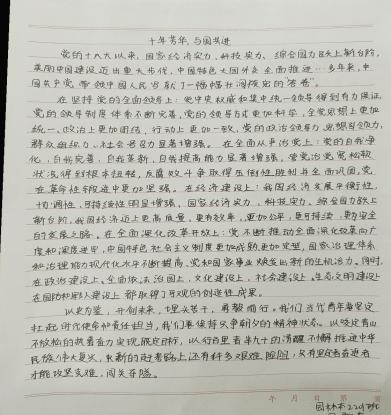 十年芳华,与国共进
党的十八大以来,国家经济实力、科技实力、综合国力跃上新台阶,
美丽中国建设迈出重大步伐,中国特色大国外交全面推进…多年来,中
国共产党带领中国人民书写了一幅幅壮阔波澜的"答卷"
在坚持党的全面领导上:党中央权威和集中统一领导得到有力保证,
党的领导制度体系不断完善,党的领导方式更加科学,全党思想上更加
统一、政治上更加团结、行动上更加一致,党的政治领导力、思想引领力、
群众组织力、社会号召力显著增强。在全面从严治党上:党的自我净
化、自我完善、自我革新、自我提高能力显著增强,管党治党宽松软
状况得到根本扭转,反腐败斗争取得压倒性胜利并全面巩固,党
在革命性锻造中更加坚强。在经济建设上:我国经济发展平衡性、
协调性、可持续性明显增强,国家经济实力、科技实力、综合国力跃上
新台阶,我国经济迈上更高质量、更有效率、更加公平、更可持续、更为安全
的发展之路。在全面深化改革开放上:党不断推动全面深化改革向广
度和深度进军,中国特色社会主义制度更加成熟更加定型,国家治理体系
和治理能力现代化水平不断提高,党和国家事业焕发出新的生机活力。同时,
在政治建设上、全面依法治国上、文化建设上、社会建设上、生态文明建设上
在国防和军队建设上 都取得了可观的创造性成果。
以史为鉴,开创未来,埋头苦干,勇毅前行。我们当代青年要坚定
扛起时代使命和责任担当,我们要保持只争朝夕的精神状态,以咬定青山
不放松的执着奋力实现既定目标,以行百里者半九十的清醒不懈推进中华
民族伟大复兴,我新的赶考路上还有许多艰难险阻,只有坚定奋进者
才能攻坚克难,闯关夺隘。
年 月 日 第
园林本2201班